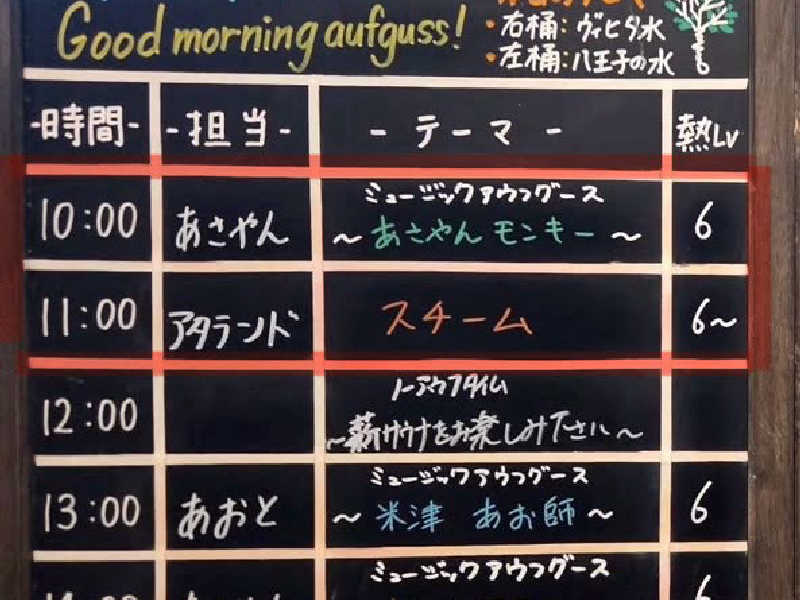 Good morning aufguss!
・右桶：ヴィヒタ水
・左桶：八王子の水
-時間-
-担当-
- テーマ -
熱Lv
10:00
あさやん
ミュージックアウフグース
～あさやんモンキー～
6
11:00
アタランド
スチーム
6～
12:00
ノーアウフタイム
～薪サウナをお楽しみ下さい～
13:00
あおと
ミュージックアウフグース
～米津 あお師～
6
ミュージックアウフグース